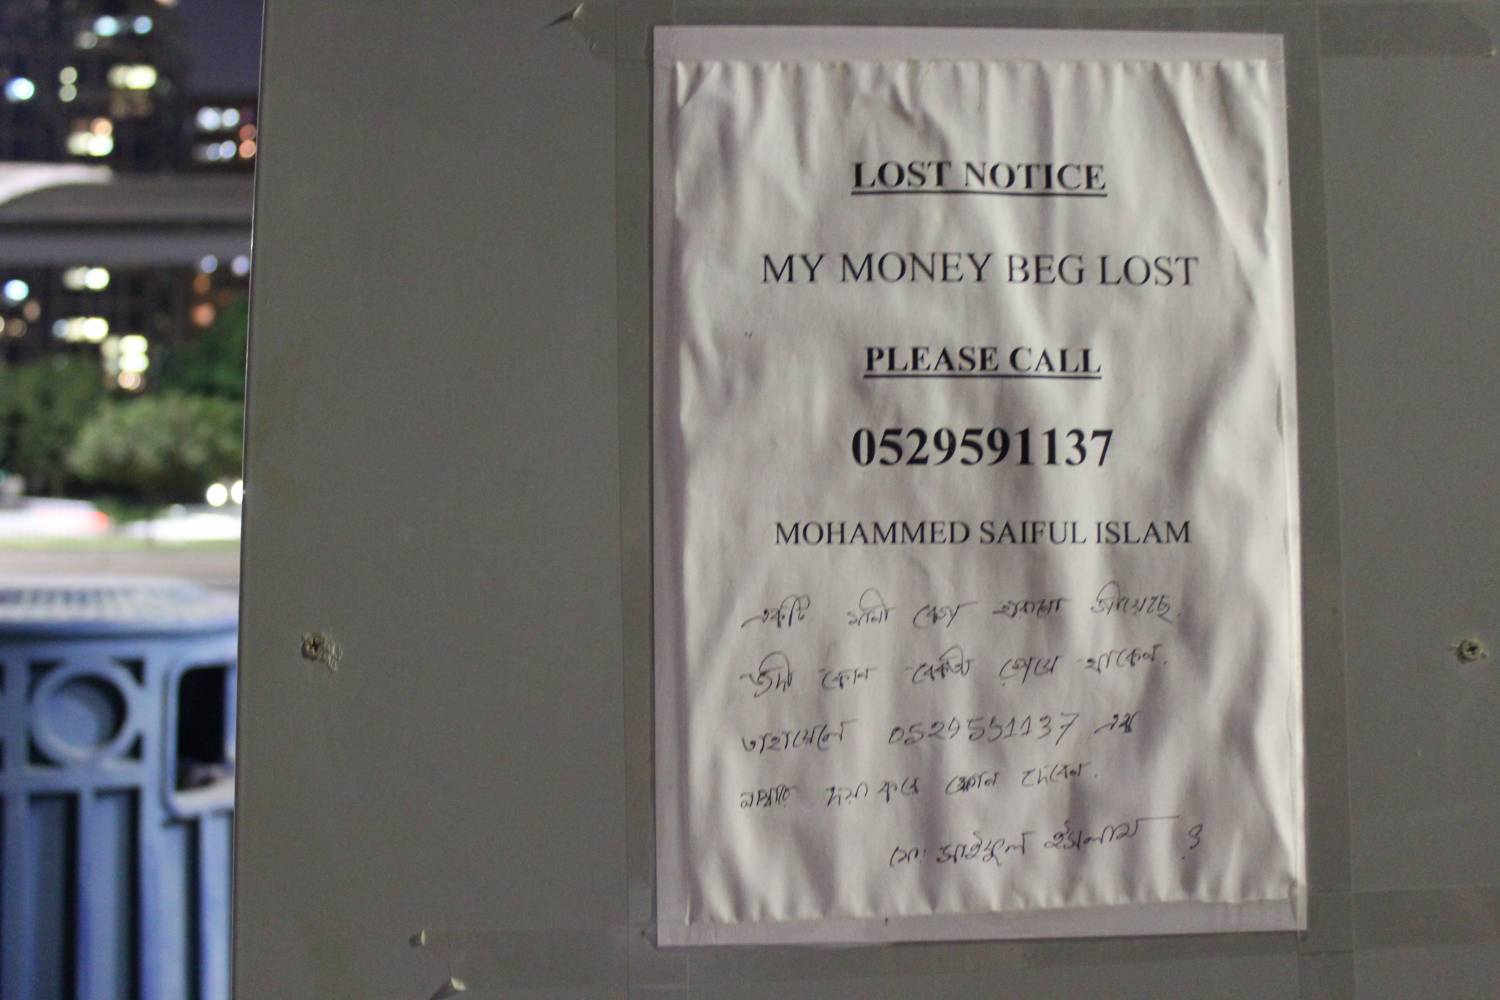 LOST NOTICE
MY MONEY BEG LOST
PLEASE CALL
0529591137
MOHAMMED SAIFUL ISLAM
একটি মানি বেগ হারায়া গীয়েছে.
যদী কোন বেকতী পেয়ে থাকেন.
তাহালে 0529591137 এই
নাম্বারে দয়া করে ফোন দেবেন.
মো: সাইফুল ইসলাম